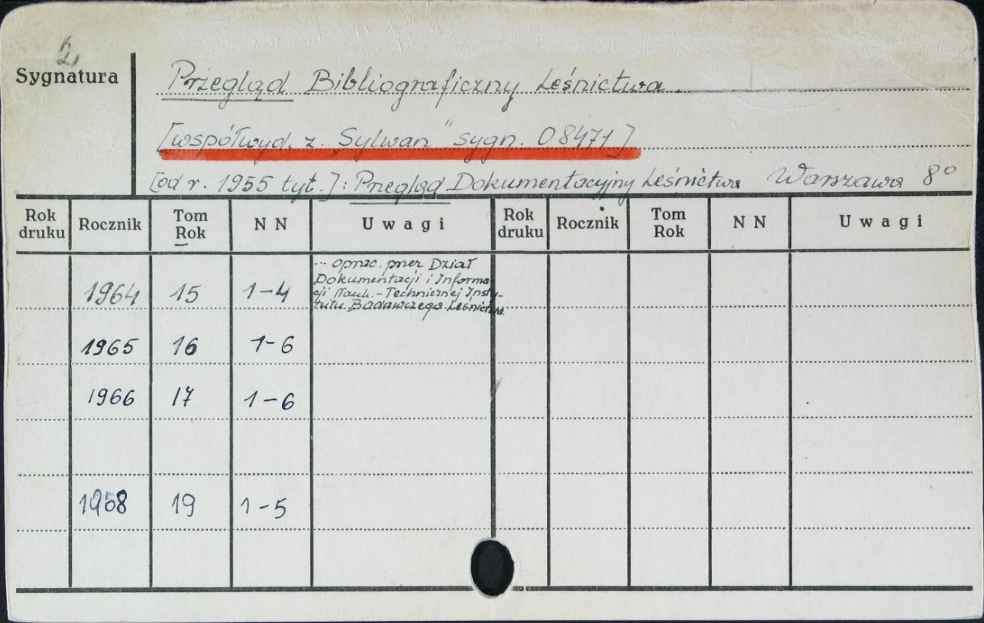 2
Sygnatura
Przegląd Bibliograficzny Leśnictwa.
[współwyd. z „Sylwan" sygn. 08471]
[od r. 1955 tyt.]: Przegląd Dokumentacyjny Leśnictwa Warszawa 8°
Rok druku Rocznik Tom Rok N N Uwagi Rok druku Rocznik Tom Rok N N Uwagi
... oprac. przez Dział
Dokumentacji i Informa
cji Nauk.-Technicznej Insty-
tutu Badawczego Leśnictwa
1964 15 1-4
1965 16 1-6
1966 17 1-6
1968 19 1-5